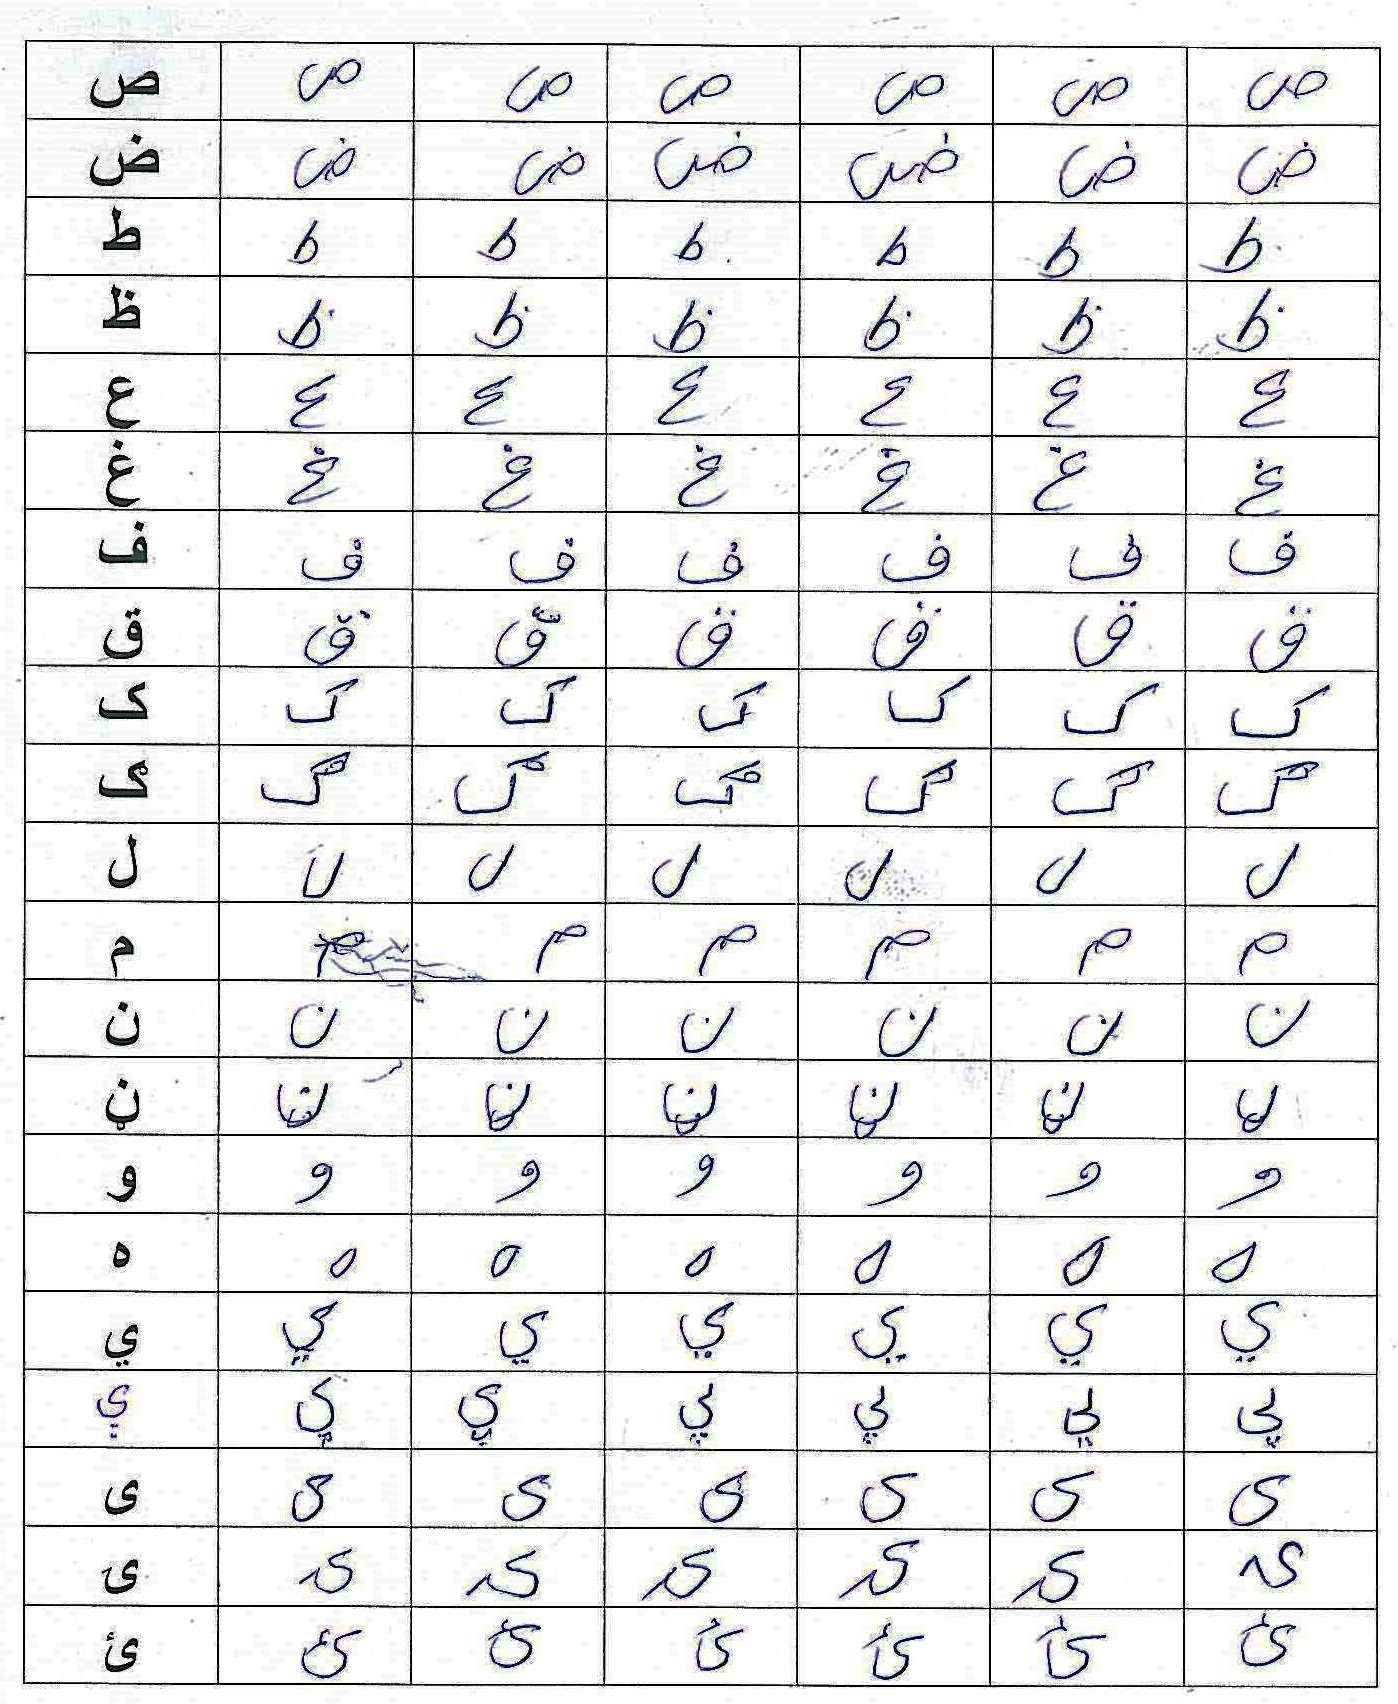 ص ص ص ص ص ص ص
ض ض ض ض ض ض ض
ط ط ط ط ط ط ط
ظ ظ ظ ظ ظ ظ ظ
ع ع ع ع ع ع ع
غ غ غ غ غ غ غ
ف ف ف ف ف ف ف
ق ق ق ق ق ق ق
ک ک ک ک ک ک ک
ګ ګ ګ ګ ګ ګ ګ
ل ل ل ل ل ل ل
م م م م م م م
ن ن ن ن ن ن ن
ڼ ڼ ڼ ڼ ڼ ڼ ڼ
و و و و و و و
ه ه ه ه ه ه ه
ي ي ي ي ي ي ي
ې ې ې ې ې ې ې
ی ی ی ی ی ی ی
ۍ ۍ ۍ ۍ ۍ ۍ ۍ
ئ ئ ئ ئ ئ ئ ئ